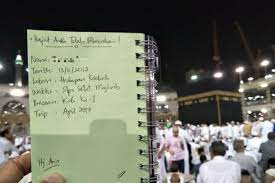 Hajat Anda Telah Ditunaikan!
Nama:
Tarikh: 13/4/2017
Lokasi: Hadapan Kaabah
Waktu: Slps Solat Maghrib
Tawaran: Kali Ke-
Trip: April 2017